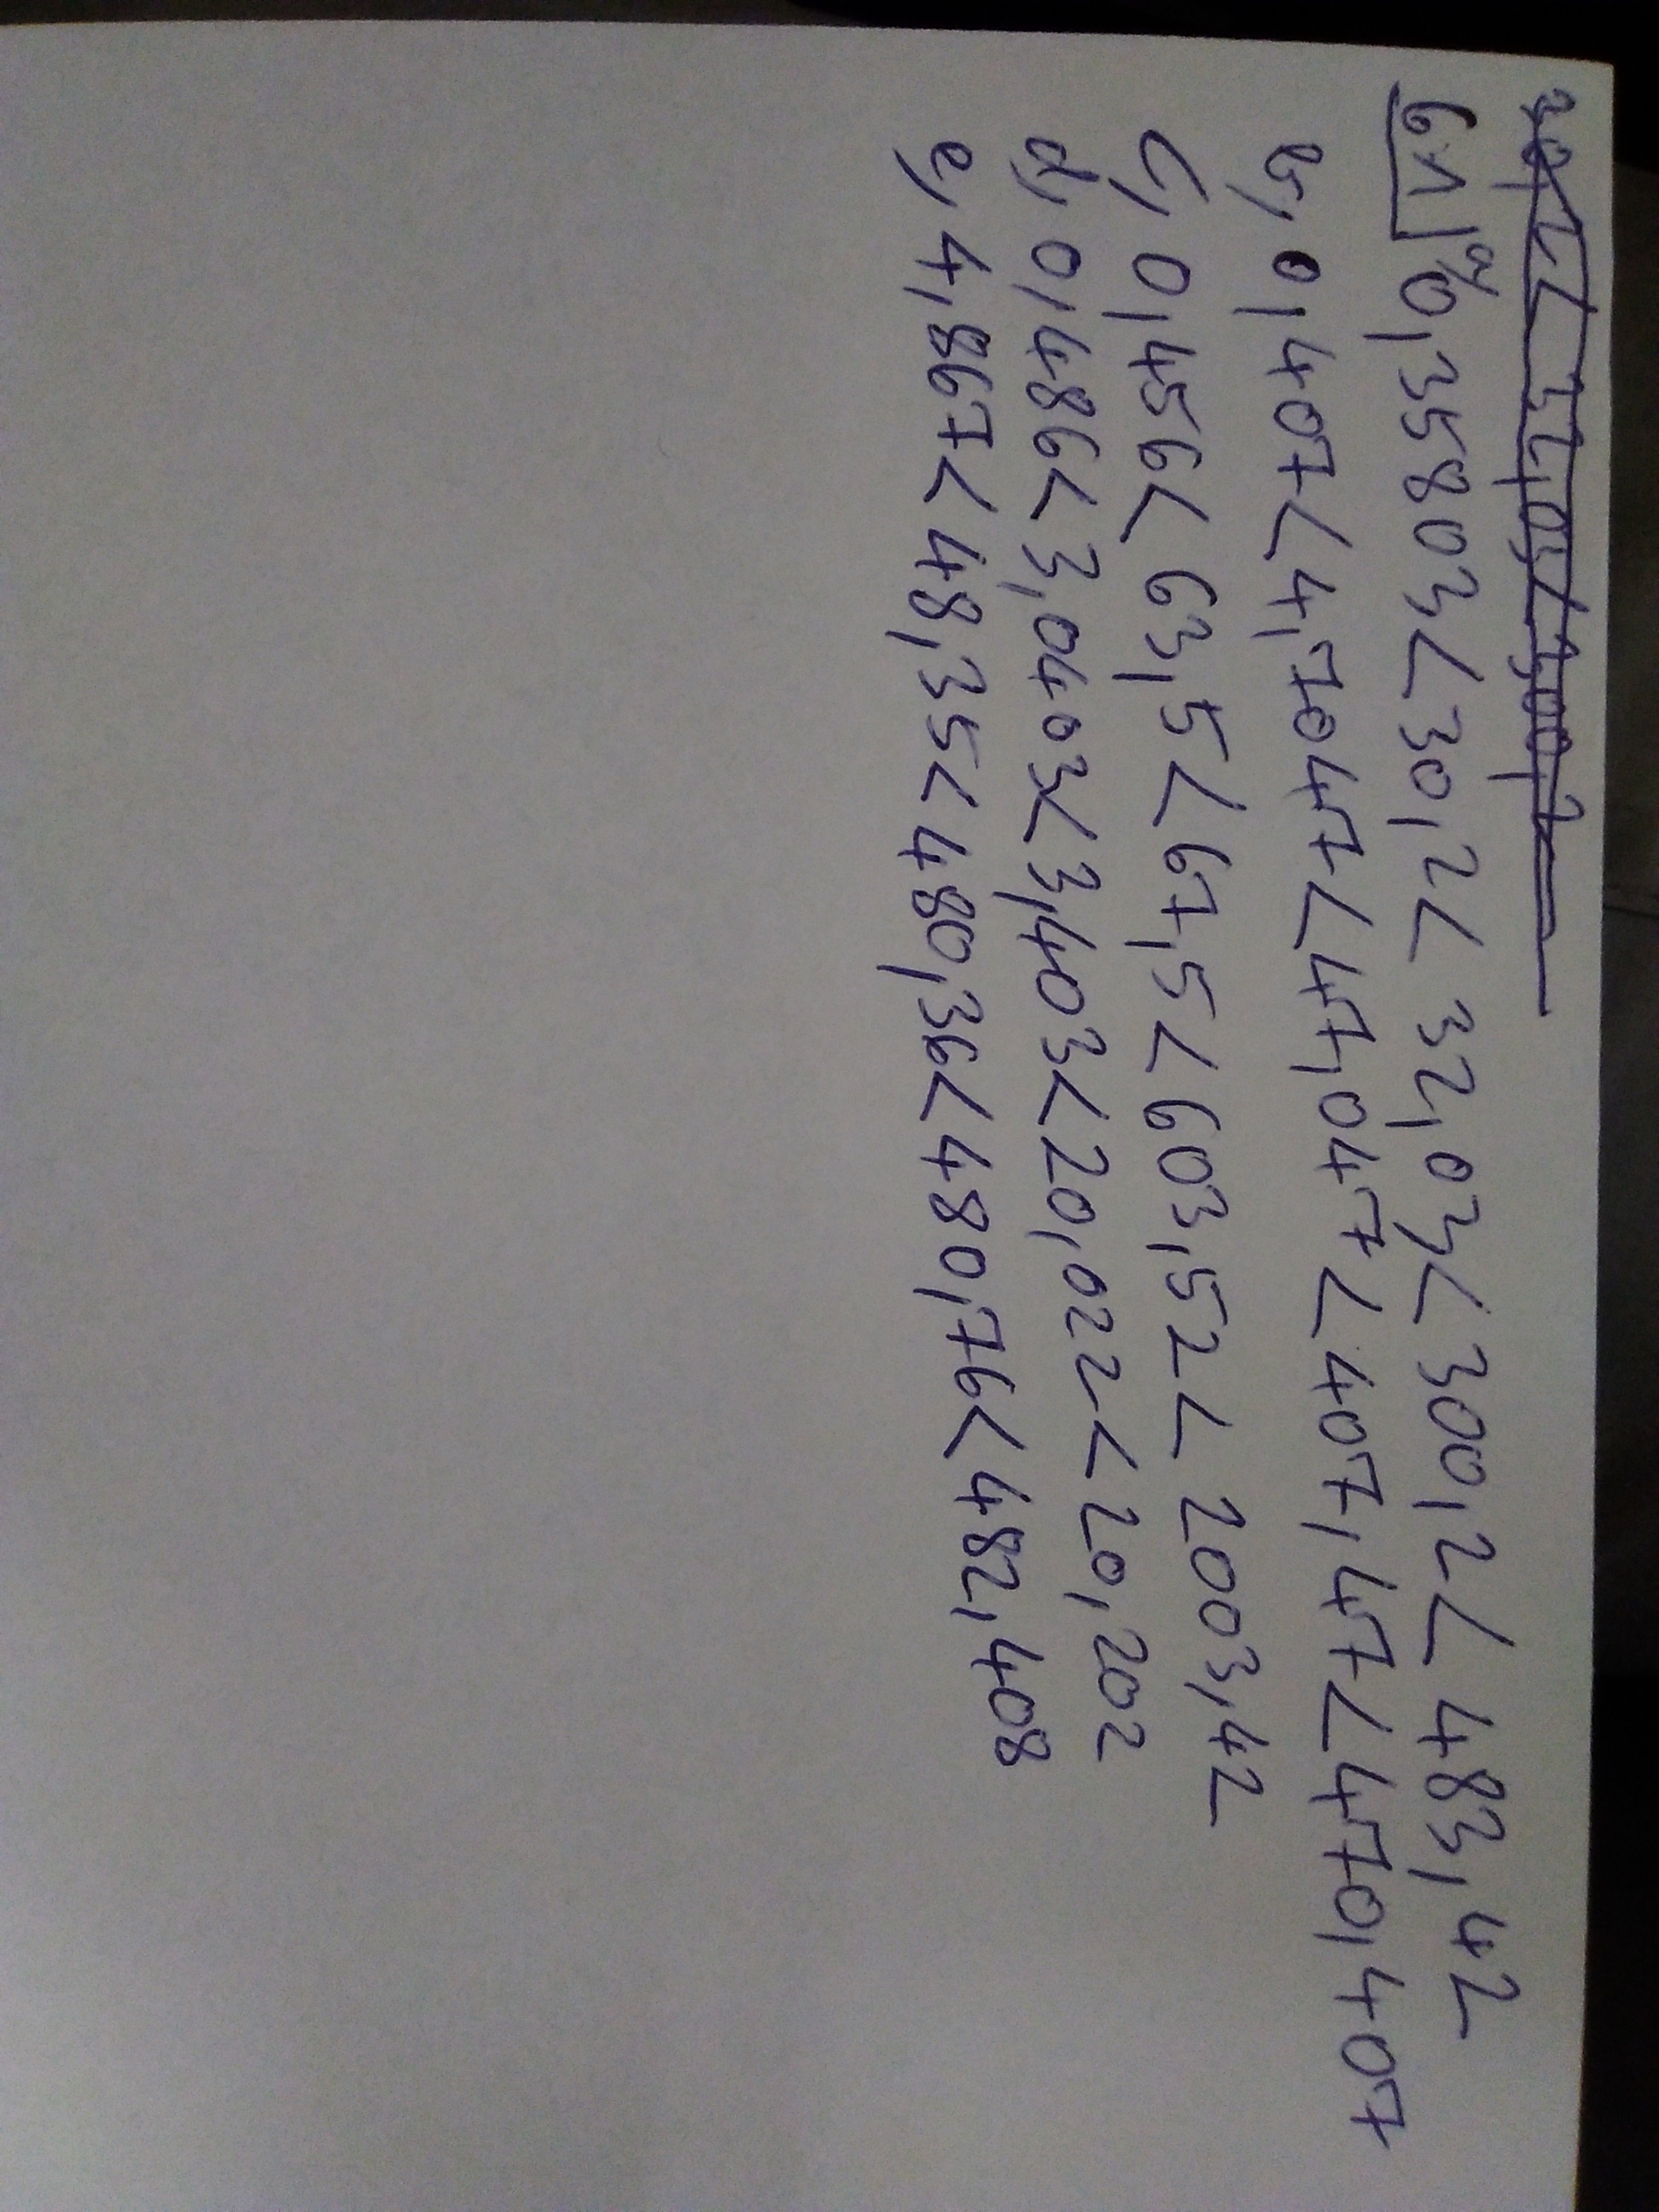 6.1 a, 0,35803<30,2<32,03<300,2<483,42
b, 0,407<4,7047<47,047<407,47<470,407
c, 0,456<63,5<67,5<603,52<2003,42
d, 0,486<3,0403<3,403<20,022<20,202
e, 4,867<48,35<480,36<480,76<482,408